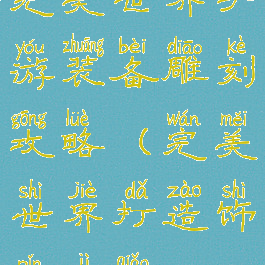 美 世 界
yóu zhuāng bèi diāo kè
游 装 备 雕 刻
gōng lüè wán měi
攻 略 ( 完 美
shì jiè dǎ zào shì
世 界 打 造 饰